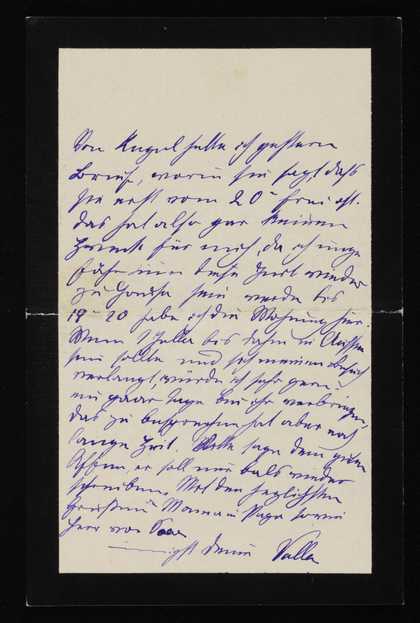 Von Kugel hatte ich gestern
Brief, worin sie sagt, daß
sie erst vom 20 frei ist.
Das hat also gar keinen
Zweck für mich, da ich unge
fähr um diese Zeit wieder
zu Hause sein werde bis
19-20 habe ich die Wohnung hier.
Wenn Stella bis dahin in Aussee
sein sollte und sie meinen Besuch
verlangt, würde ich sehr gern
ein paar Tage bei ihr verbringen,
das zu besprechen hat aber noch
lange Zeit. Bitte sage dem guten
er soll mir bald wieder
schreiben. Mit den herzlichsten
Grüßen Mama Papa sowie
Herr von
innigst Deine Valla